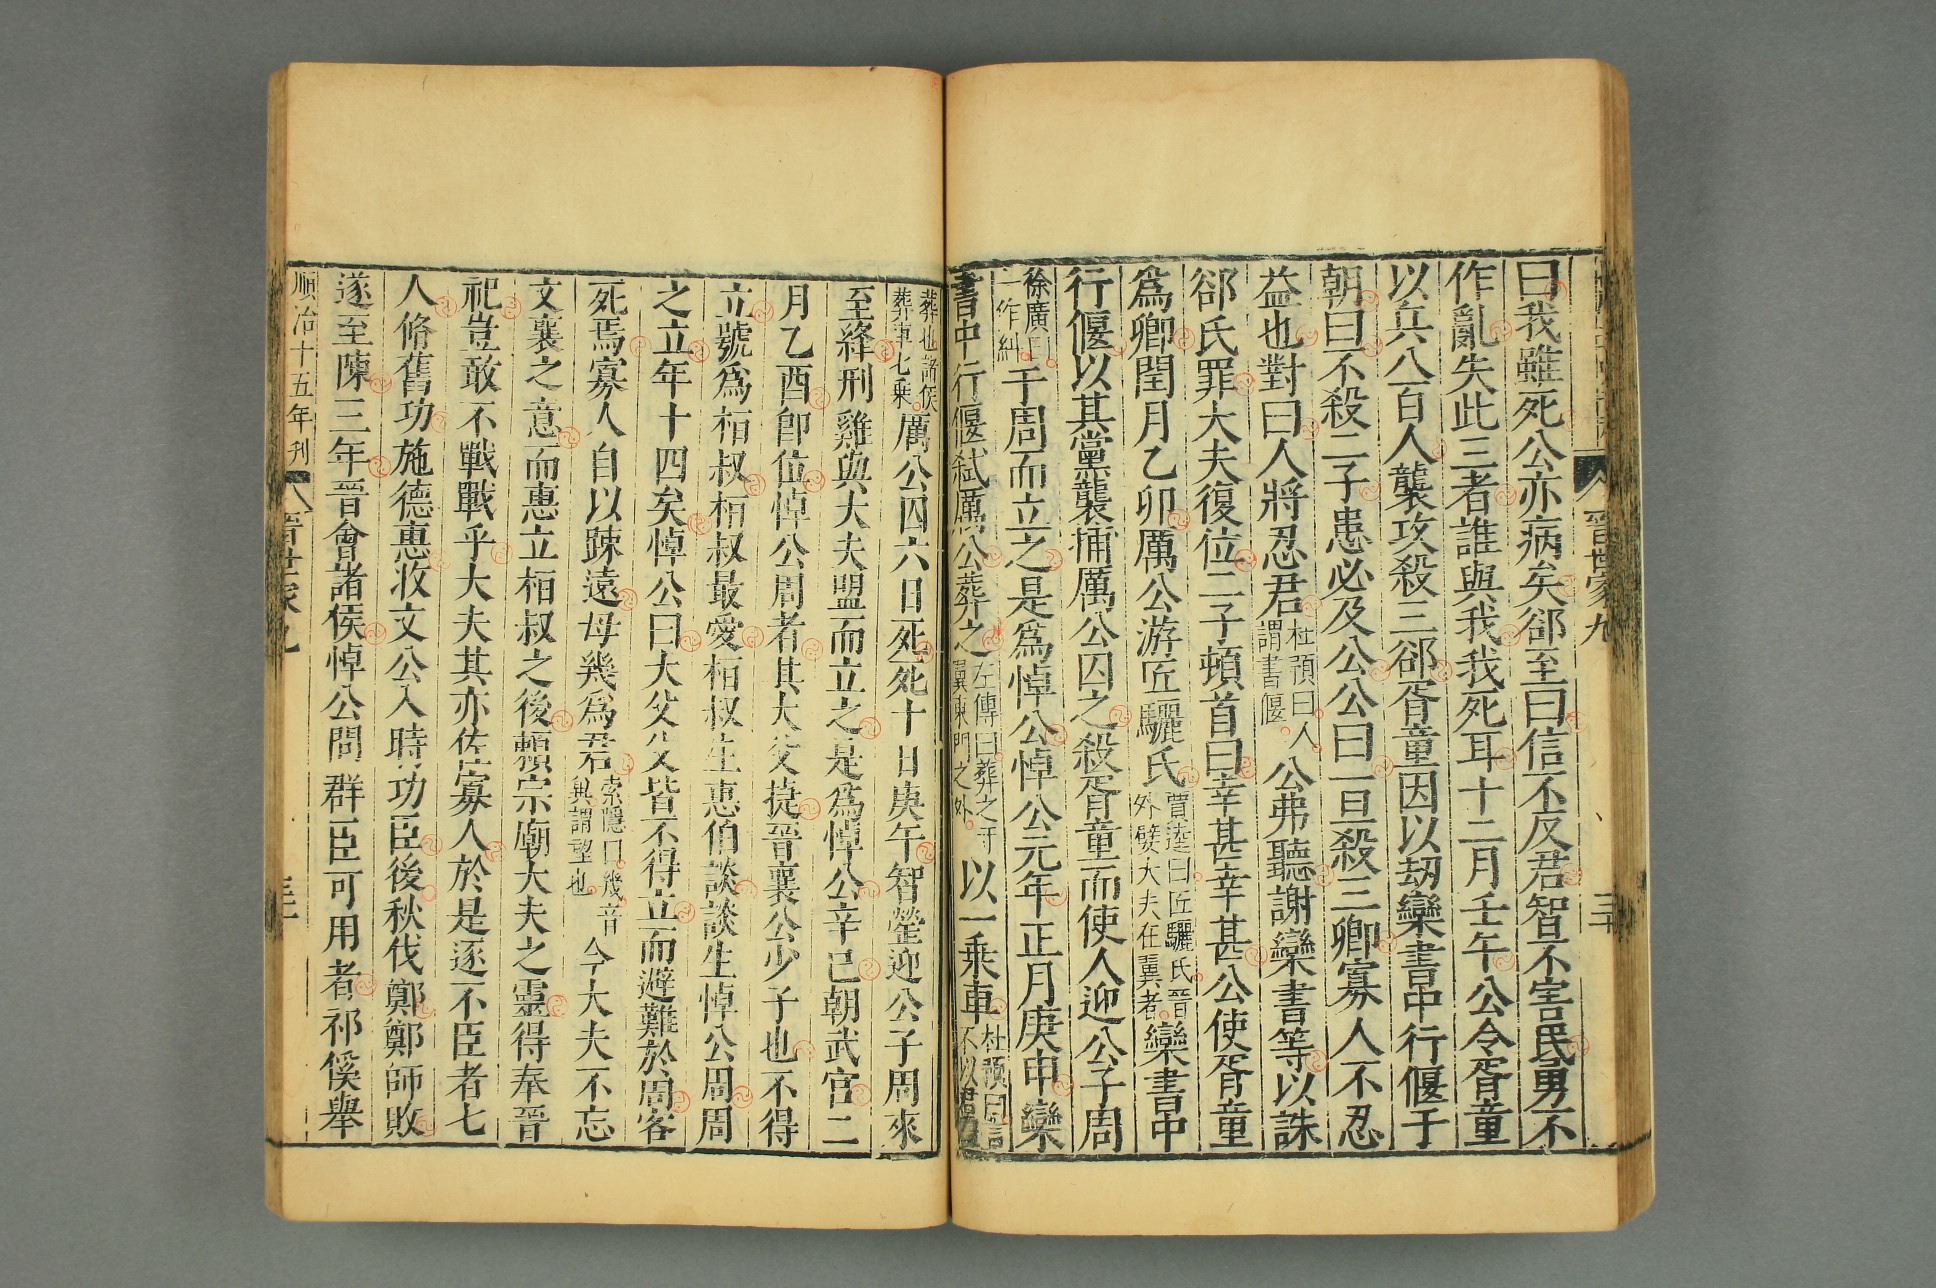 晉世家九
三十
曰我雖死公亦病矣郤至曰信不反君智不害民男不
作亂失此三者誰與我我死耳十二月壬午公令胥童
以兵八百人襲攻殺三郤胥童因以刼欒書中行偃于
朝曰不殺二子患必及公公曰一旦殺三卿寡人不忍
益也對曰人將忍君杜預曰人謂書偃公弗聽謝欒書等以誅
郤氏罪大夫復位二子頓首曰幸甚幸甚公使胥童
爲卿閏月乙卯厲公游匠驪氏賈逵曰匠驪氏晉外嬖大夫在翼者欒書中
行偃以其黨襲捕厲公囚之殺胥童而使人迎公子周
徐廣曰一作糾于周而立之是爲悼公悼公元年正月庚申欒
書中行偃弒厲公葬之左傳曰葬之于翼東門之外以一乘車杜預曰言不以君
葬也諸侯葬車七乘厲公囚六日死死十日庚午智罃迎公子周來
至絳刑雞與大夫盟而立之是爲悼公辛巳朝武宮二
月乙酉卽位悼公周者其大父捷晉襄公少子也不得
立號爲桓叔桓叔最愛桓叔生惠伯談談生悼公周周
之立年十四矣悼公曰大父父皆不得立而避難於周客
死焉寡人自以踈遠毋幾爲君索隱曰幾音冀謂望也今大夫不忘
文襄之意而惠立桓叔之後賴宗廟大夫之靈得奉晉
祀豈敢不戰戰乎大夫其亦佐寡人於是逐不臣者七
人脩舊功施德惠收文公入時功臣後秋伐鄭鄭師敗
遂至陳三年晉會諸侯悼公問群臣可用者祁傒舉
順治十五年刊
晉世家九